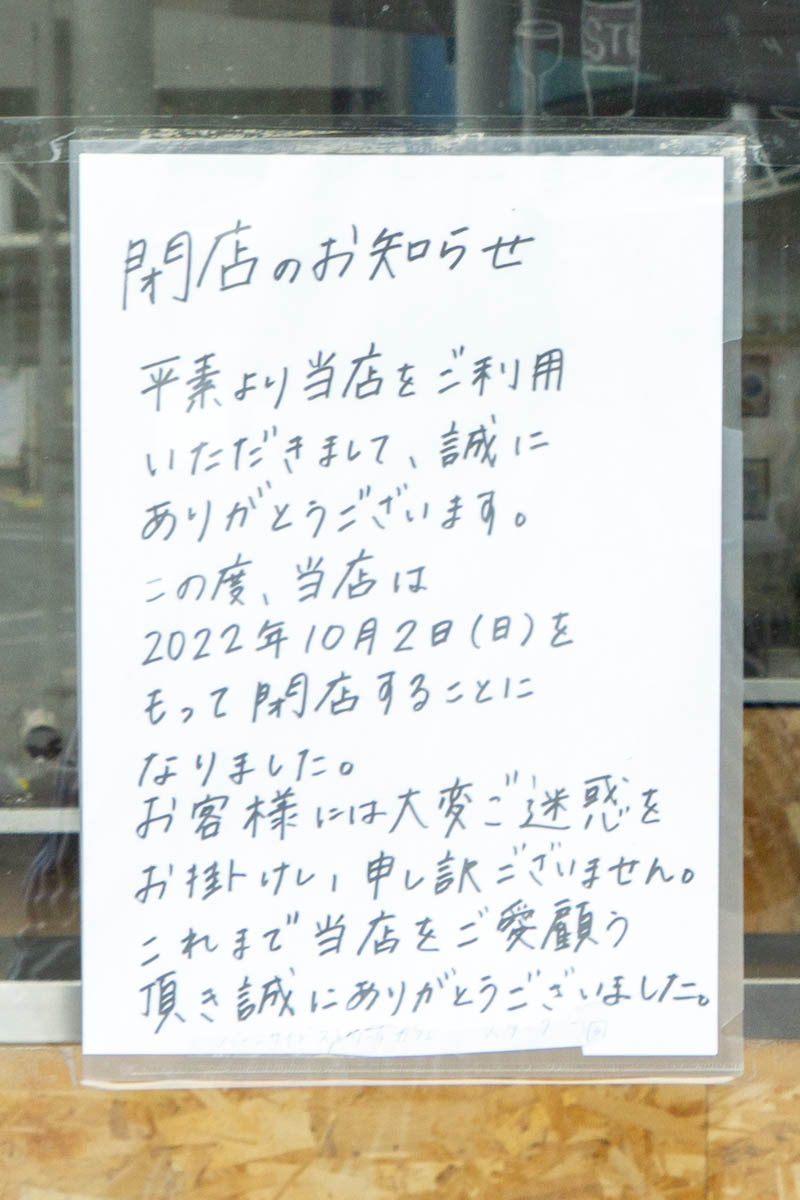 STE
閉店のお知らせ
平素より当店をご利用
いただきまして、誠に
ありがとうございます。
この度、当店は
2022年10月2日(日)を
もって閉店することに
なりました。
お客様には大変ご迷惑を
お掛けし、申し訳ございません。
これまで当店をご愛顧う
頂き誠にありがとうございました。